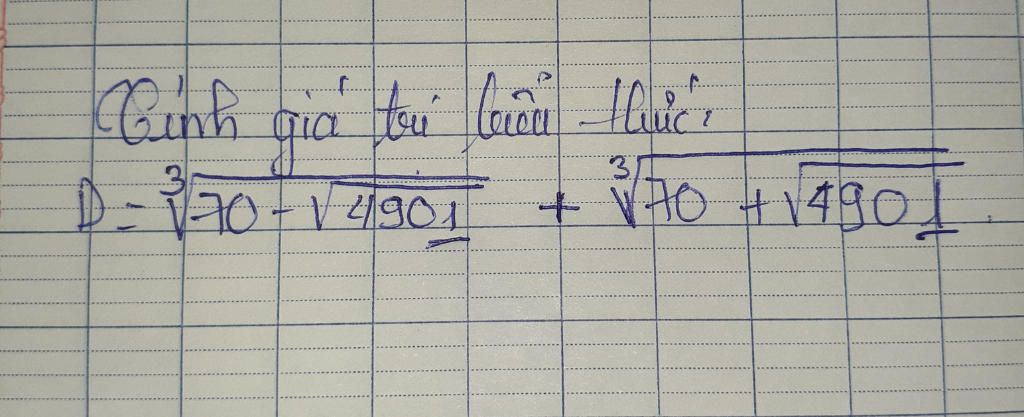 Tính giá trị biểu thức:
D = ∛(70 - √4901) + ∛(70 + √4901).